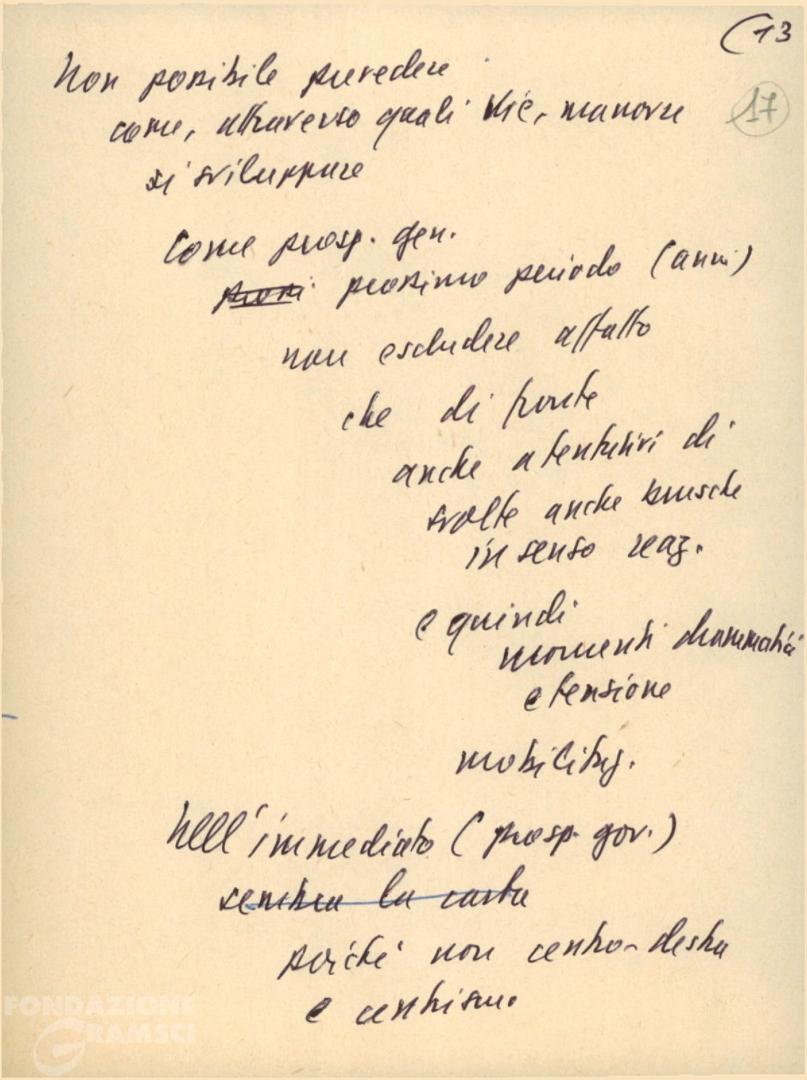 (13
17
Non possibile prevedere
come, attraverso quali vie, manovre
si sviluppare
Come prosp. gen.
prossimo periodo (anni)
non escludere affatto
che di fronte
anche a tentativi di
svolte anche brusche
in senso reaz.
e quindi
momenti drammatici
e tensione
mobilitaz.
Nell'immediato (prosp. gov.)
sembra la carta
poiché non centro-destra
e centrismo
FONDAZIONE
GRAMSCI